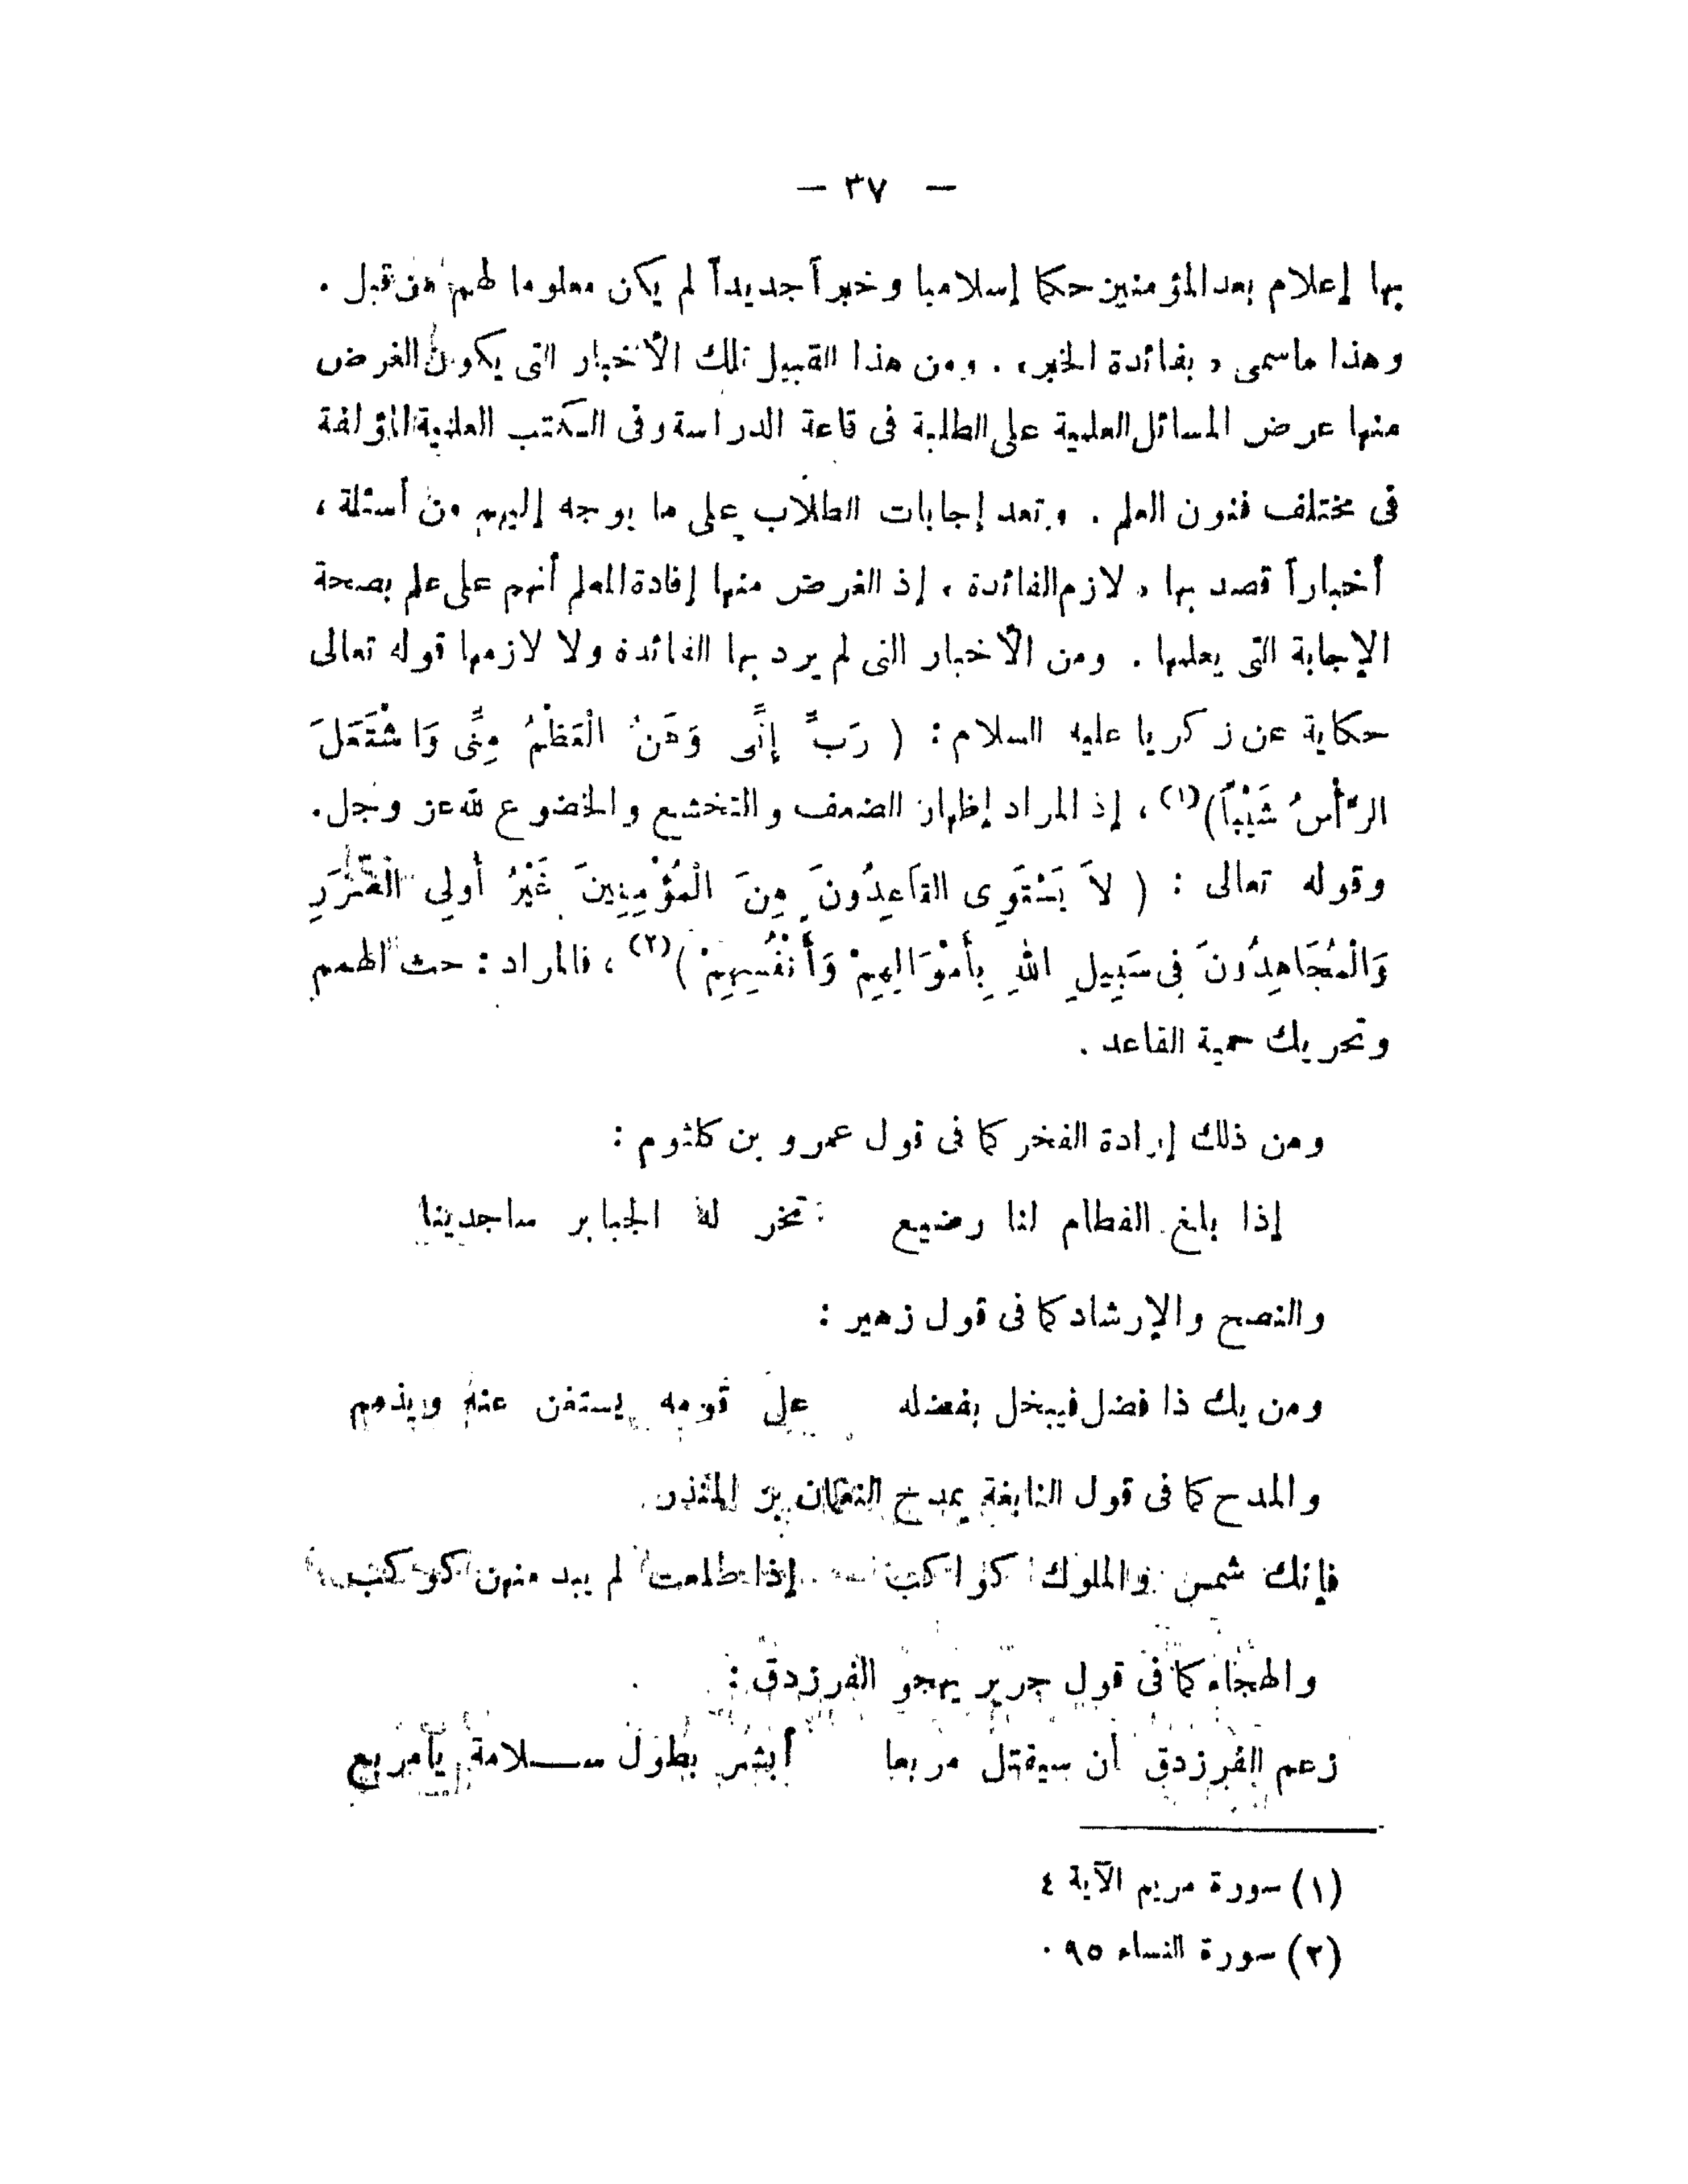 — ٣٧ —
بها إعلام بعد المؤمنين حكما إسلاميا وخبراً جديداً لم يكن معلوما لهم من قبل .
وهذا ماسمى « بفائدة الخبر» . ومن هذا القبيل تلك الأخبار التى يكون الغرض
منها عرض المسائل العلمية على الطلبة فى قاعة الدراسة وفى الكتب العلمية المؤلفة
فى مختلف فنون العلم . وتعد إجابات الطلاب على ما يوجه إليهم من أسئلة ،
أخباراً قصد بها « لازم الفائدة » إذ الغرض منها إفادة المعلم أنهم على علم بصحة
الإجابة التى يعلمها . ومن الأخبار التى لم يرد بها الفائدة ولا لازمها قوله تعالى
حكاية عن زكريا عليه السلام : ( رَبِّ إِنِّى وَهَنَ الْعَظْمُ مِنِّى وَاشْتَعَلَ
الرَّأْسُ شَيْباً)(١) ، إذ المراد إظهار الضعف والتخشع والخضوع لله عز وجل.
وقوله تعالى : ( لاَ يَسْتَوِى القَاعِدُونَ مِنَ الْمُؤْمِنِينَ غَيْرُ أُولِى الضَّرَرِ
وَالْمُجَاهِدُونَ فِى سَبِيلِ اللهِ بِأَمْوَالِهِمْ وَأَنْفُسِهِمْ )(٢) ، فالمراد : حث الهمم
وتحريك حمية القاعد .
ومن ذلك إرادة الفخر كما فى قول عمرو بن كلثوم :
إذا بلغ الفطام لنا رضيع تخر له الجبابر ساجدينا
والنصح والإرشاد كما فى قول زهير :
ومن يك ذا فضل فيبخل بفضله على قومه يستغن عنه ويذمم
والمدح كما فى قول النابغة يمدح النعمان بن المنذر
فإنك شمس والملوك كواكب إذا طلعت لم يبد منهن كوكب
والهجاء كما فى قول جرير يهجو الفرزدق :
زعم الفرزدق أن سيقتل مربعا أبشر بطول ســلامة يامربع
(١) سورة مريم الآية ٤
(٢) سورة النساء ٩٥ .